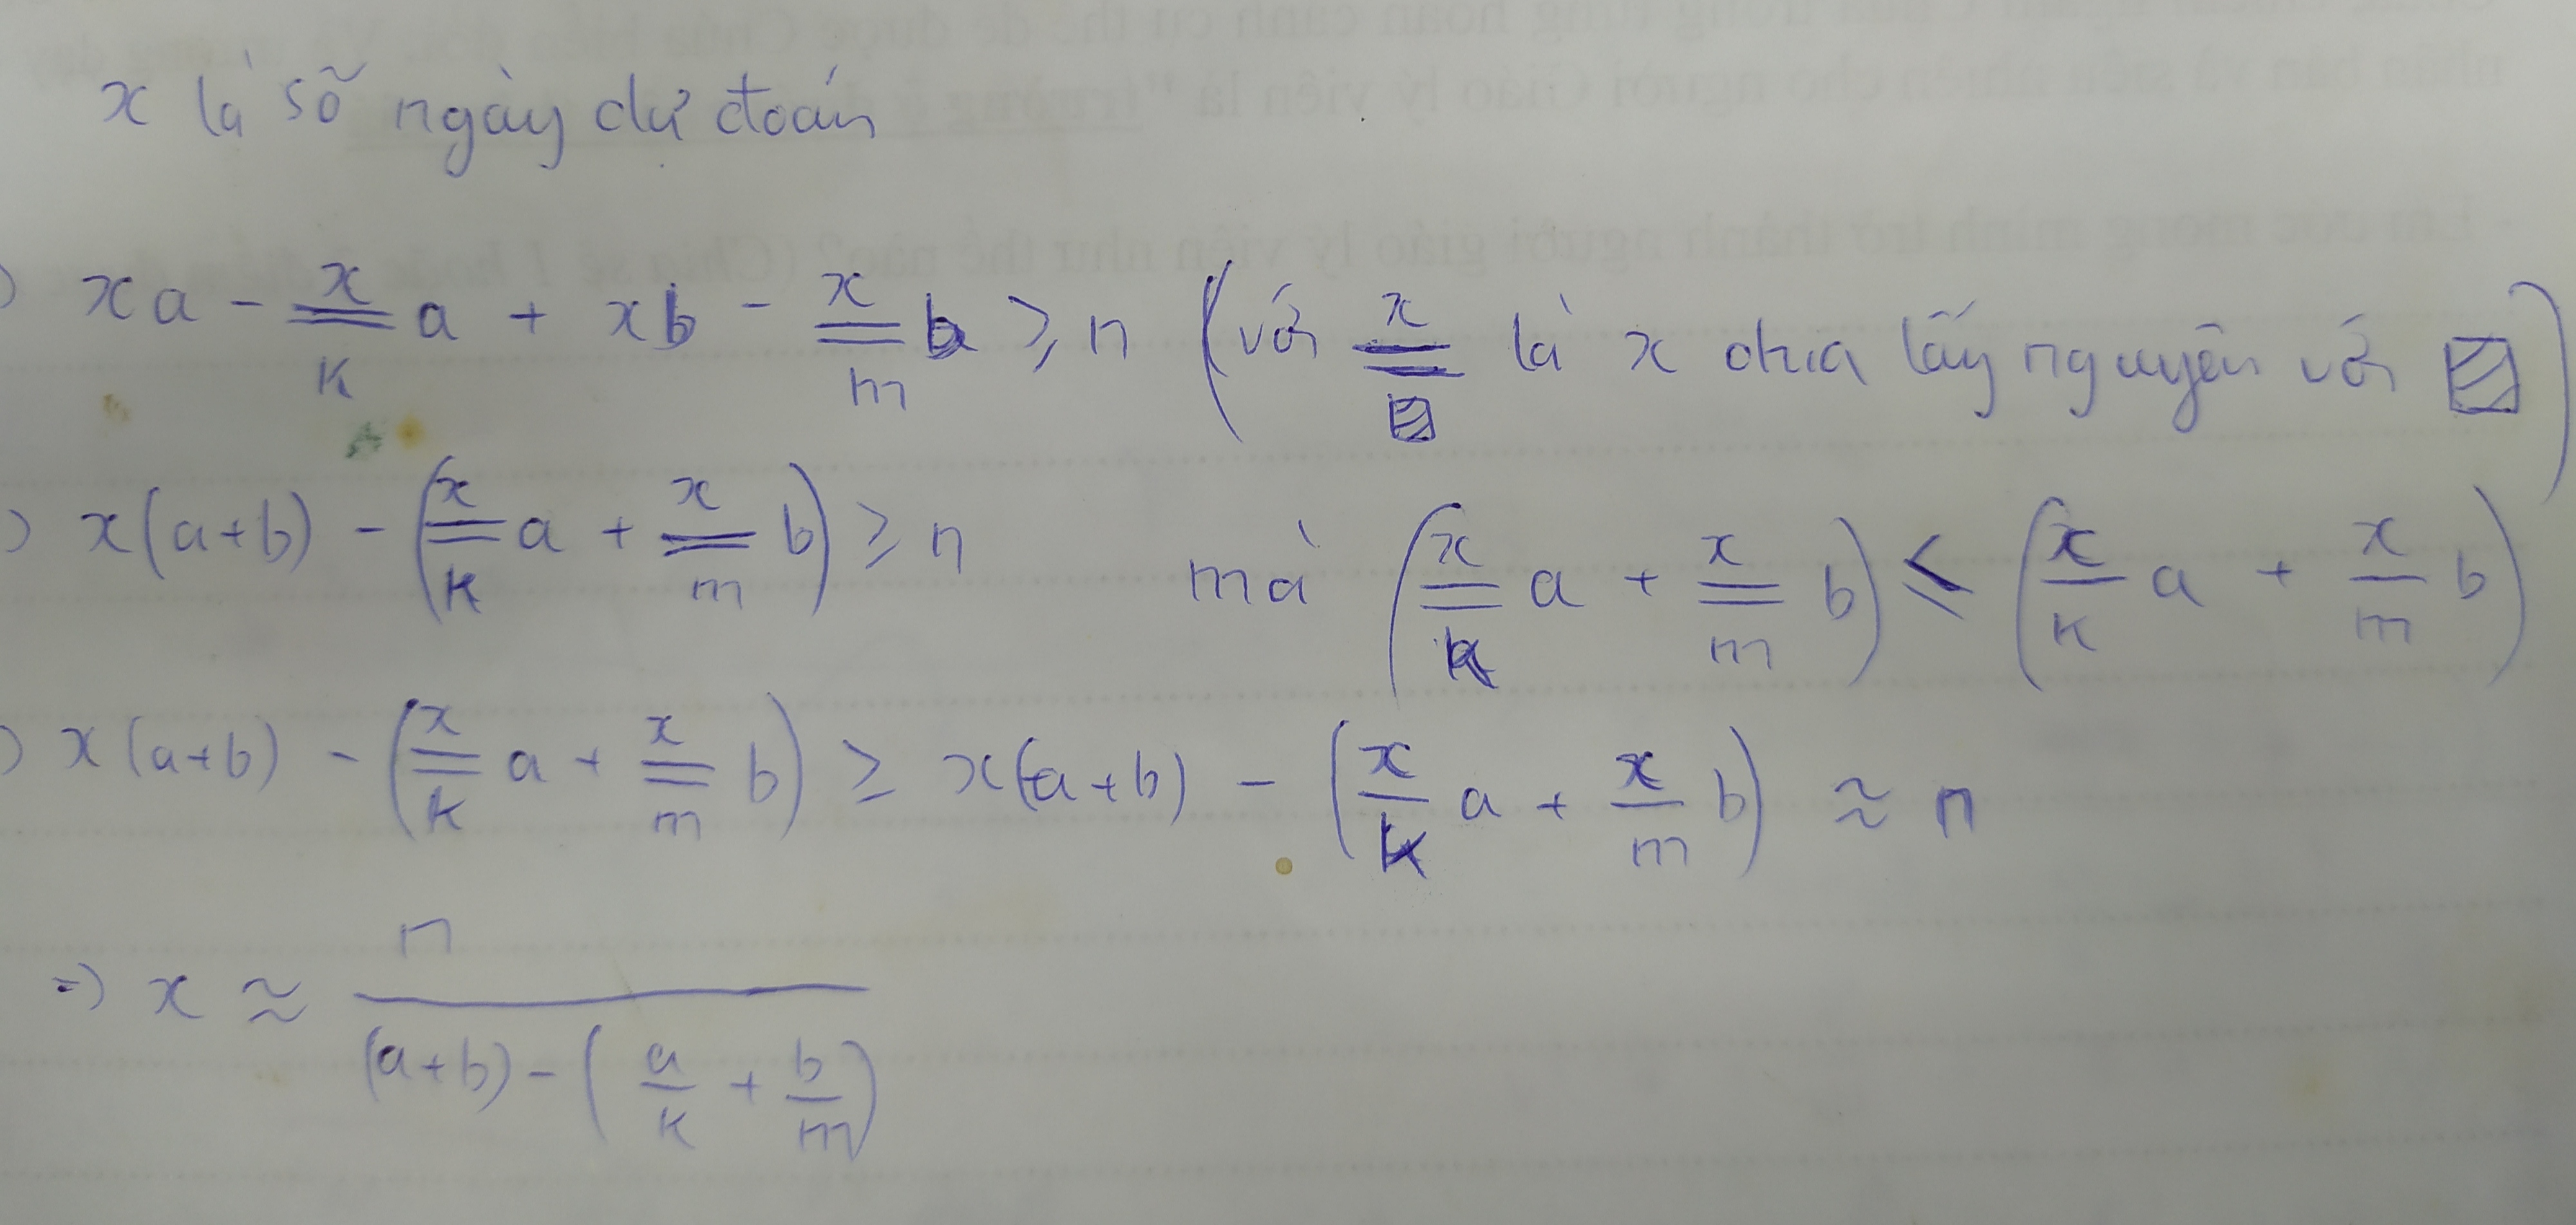 x là số ngày dự đoán
) xa - x/k a + xb - x/m b ≥ n (với x/▨ là x chia lấy nguyên với ▨)
) x(a+b) - (x/k a + x/m b) ≥ n mà (x/k a + x/m b) ≤ (x/k a + x/m b)
) x(a+b) - (x/k a + x/m b) ≥ x(a+b) - (x/k a + x/m b) ≈ n
=) x ≈ n / ((a+b) - (a/k + b/m))